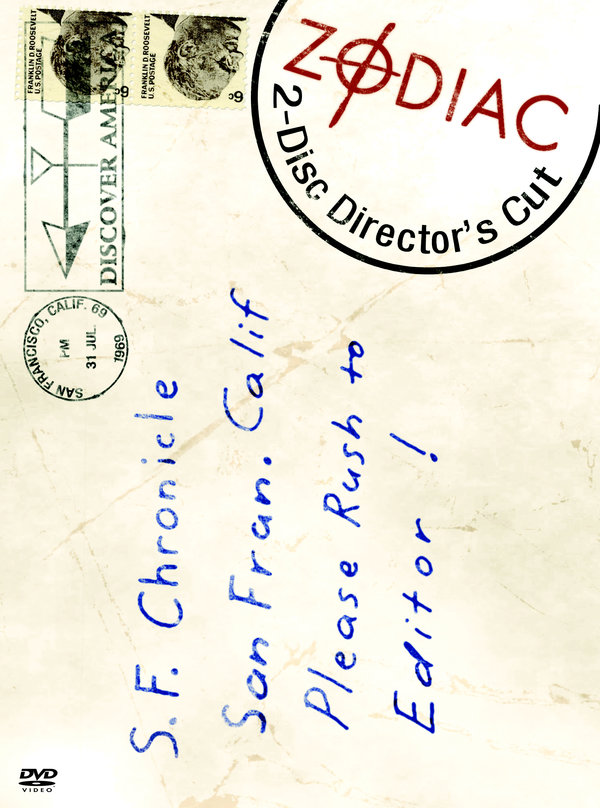 FRANKLIN D. ROOSEVELT
U.S. POSTAGE
6¢
FRANKLIN D. ROOSEVELT
U.S. POSTAGE
6¢
DISCOVER AMERICA
SAN FRANCISCO, CALIF. 69
PM
31 JUL
1969
ZODIAC
2-Disc Director's Cut
S.F. Chronicle
San Fran. Calif
Please Rush to
Editor!
DVD
VIDEO